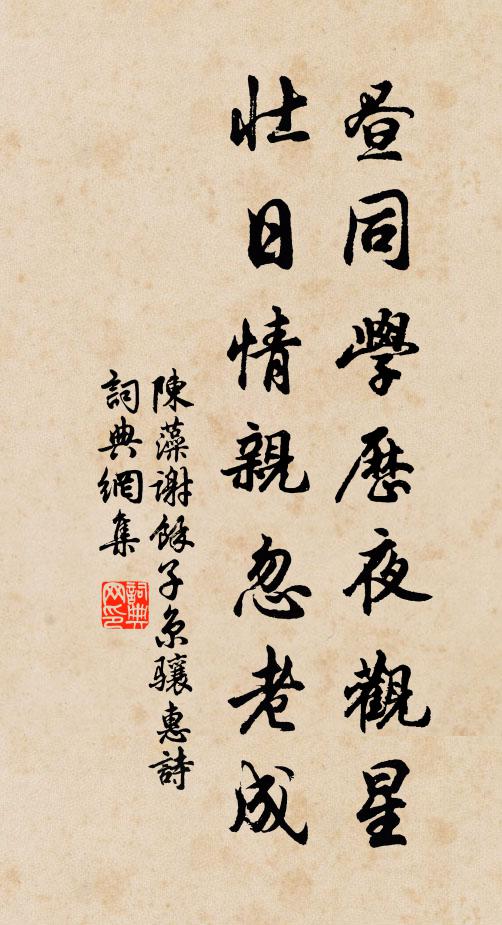 昼同學曆夜觀星
壯日情親忽老成
陳藻謝馀子京驤惠詩
詞典網集
詞典网印